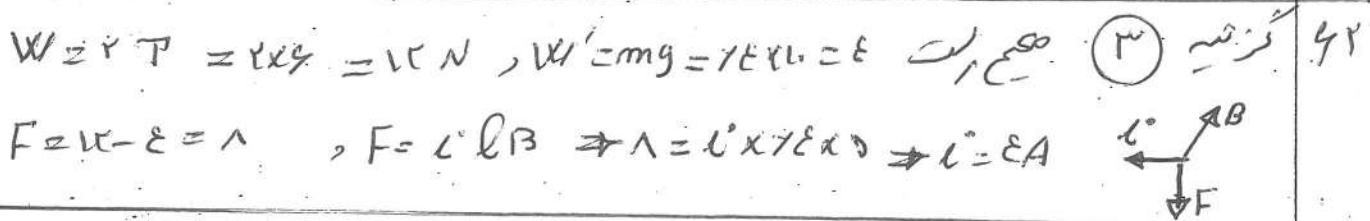 ۶۲ گزینه ۳ صحیح است W = ۲T = ۲×۶ = ۱۲ N , W' = mg = ٫٤×۱۰ = ٤
F = ۱۲ - ٤ = ۸ , F = i l B ⇒ ۸ = i × ٫٤ × ۵ ⇒ i = ٤A
i B
F